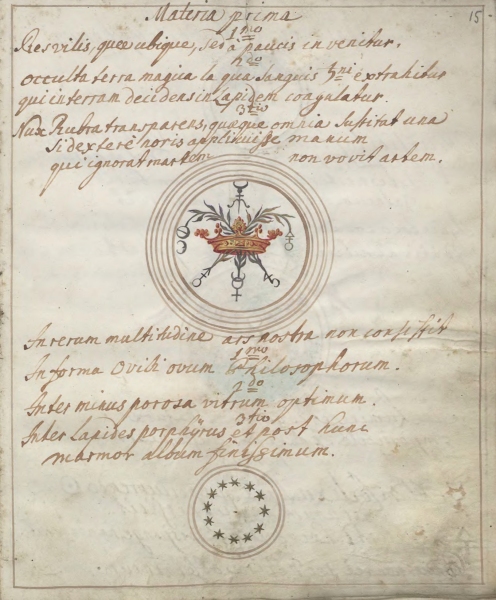 Materia prima
15
1mo
Res vilis, quæ ubique, sed à paucis invenitur.
2do
occulta terra magica qua sanguis ♄ni extrahitur
qui in terram decidens in Lapidem coagulatur.
3tio
Nux Rubra transparens, quæque omnia sustitat una
Si dextere noris applicuisse manum
qui ignorat martem non novit artem.
In rerum multitudine ars nostra non consistit
1mo
In forma Ovili ovum philosophorum.
2do
Inter minus porosa vitrum optimum.
3tio
Inter Lapides porphÿrus et post hunc
marmor album finissimum.